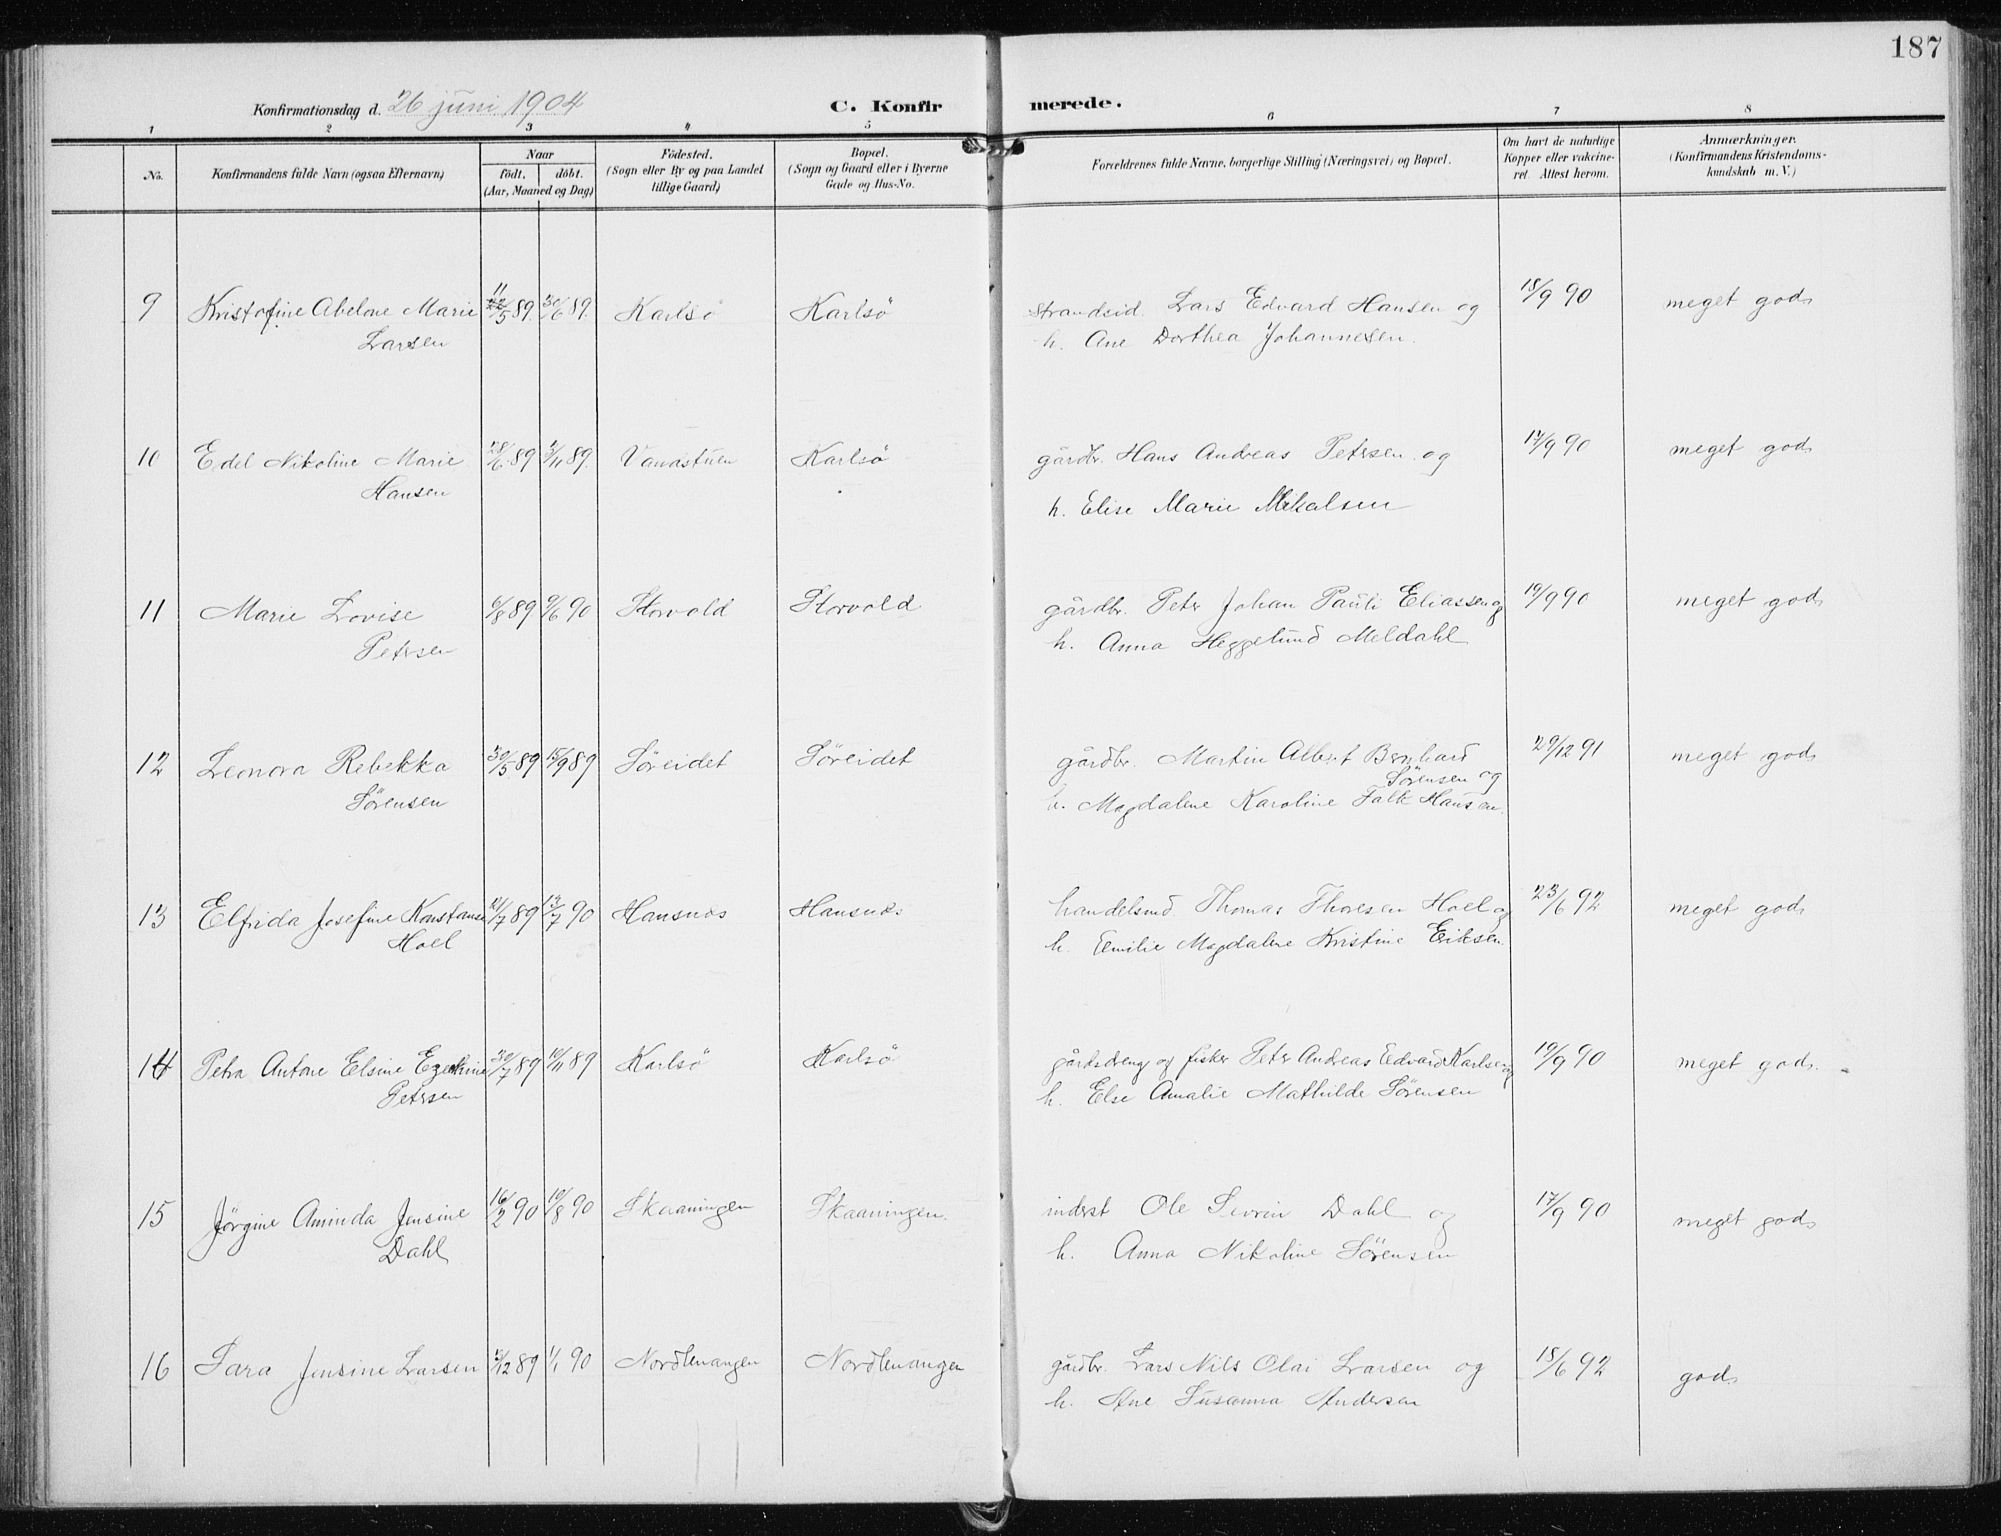 187
Konfirmationsdag d. 26 juni 1904
C. Konfirmerede.
1 2 3 4 5 6 7 8
No.
Konfirmandens fulde Navn (ogsaa Efternavn)
Naar
födt. döbt.
(Aar, Maaned og Dag)
Födested.
(Sogn eller By og paa Landet
tillige Gaard)
Bopæl.
(Sogn og Gaard eller i Byerne
Gade og Hus-No.
Forældrenes fulde Navne, borgerlige Stilling (Næringsvei) og Bopæl.
Om havt de naturlige
Kopper eller vakcine-
ret. Attest herom.
Anmærkninger.
(Konfirmandens Kristendoms-
kundskab m. V.)
9 Kristofine Abelone Marie 11/5 89. 30/6 89. Karlsö Karlsö strandsid. Lars Edvard Hansen og 18/9 90 meget god
Larsen h. Ane Dorthea Johannesen.
10 Edel Nikoline Marie 89 /11 89. Vandstuen Karlsö gårdbr. Hans Andreas Petersen og 17/9 90 meget god
Hansen h. Elise Marie Mikalsen
11 Marie Lovise 6/8 89 9/6 90 Storvold Storvold gårdbr. Peter Johan Pauli Eliassen og 19/9 90 meget god
Petersen h. Anna Heggelund Meldahl
12 Leonora Rebekka 30/5 89 15/9 89 Söreidet Söreidet gårdbr. Martin Albert Bernhard 29/12 91 meget god
Sørensen Sørensen og
h. Magdalene Karoline Falk Hansen.
13 Elfrida Josefine Konstanse 21/7 89 13/7 90 Hansnes Hansnes handelsmd. Thomas Thoresen Hoel og 23/6 92 meget god
Hoel h. Emilie Magdalene Kristine Eriksen.
14 Petra Antone Elsine Ezekine 30/7 89 10/11 89 Karlsö Karlsö gårdsdreng og fisker Peter Andreas Edvard Karlsen og 19/9 90 meget god.
Petersen h. Else Amalie Mathilde Sørensen
15 Jörgine Aminda Jensine 16/2 90 10/8 90 Skaaningen Skaaningen. inderst Ole Sevrin Dahl og 17/9 90 meget god
Dahl h. Anna Nikoline Sörensen
16 Sara Jensine Larsen /12 89 1/1 90 Nordlenangen Nordlenangen gårdbr. Lars Nils Olai Larsen og 18/6 92 god
h. Ane Susanna Andersen